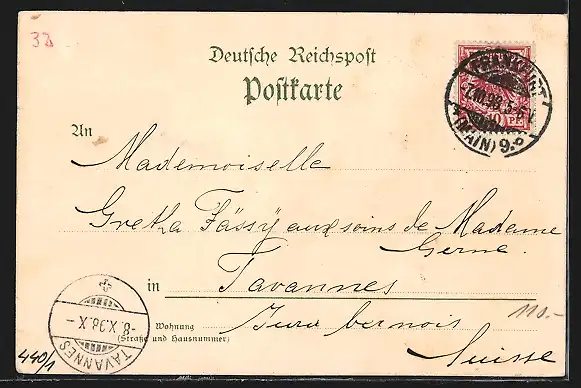 32
Deutsche Reichspost
Postkarte
FRANKFURT
(MAIN) 9.
10 PF.
An
Mademoiselle
Gretha Fässy aux soins de Madame
Gerne.
in Tavannes
Wohnung
(Straße und Hausnummer)
Jura bernois
Suisse
110.-
-8.X.98.X-
TAVANNES
440/1